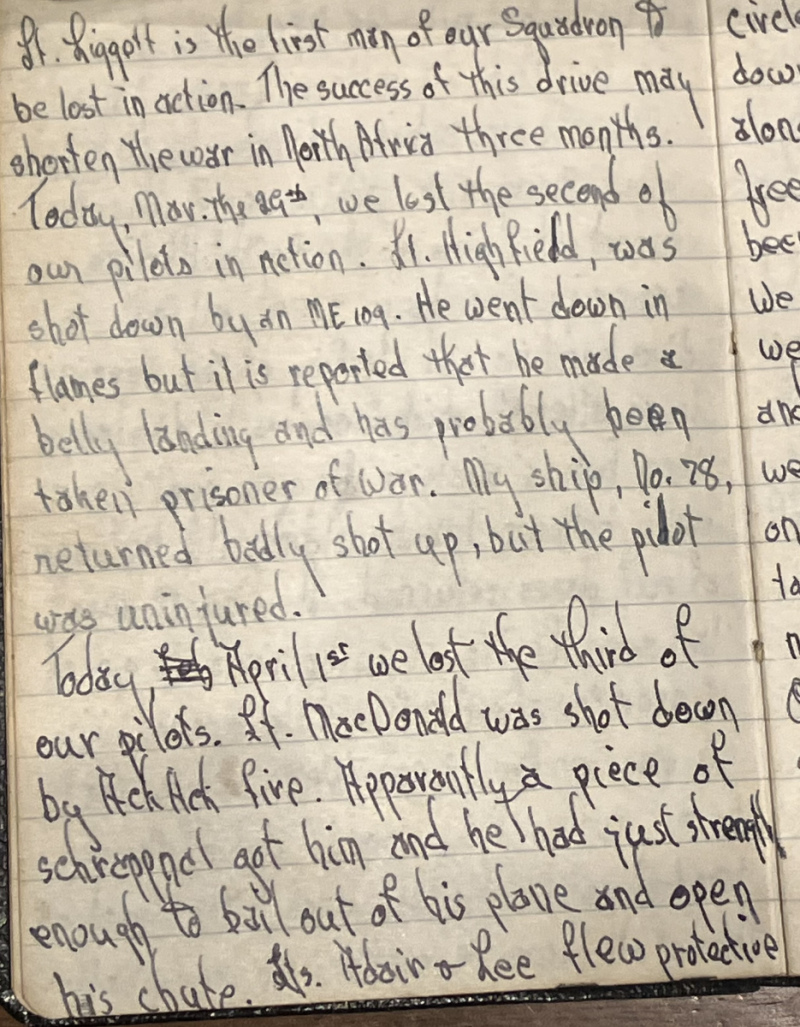 Lt. Liggott is the first man of our Squadron to
be lost in action. The success of this drive may
shorten the war in North Africa three months.
Today, Mar. the 29th, we lost the second of
our pilots in action. Lt. Highfield, was
shot down by an ME 109. He went down in
flames but it is reported that he made a
belly landing and has probably been
taken prisoner of war. My ship, No. 78,
returned badly shot up, but the pilot
was uninjured.
Today, April 1st we lost the third of
our pilots. Lt. MacDonald was shot down
by Ack Ack fire. Apparantly a piece of
schrappnel got him and he had just strength
enough to bail out of his plane and open
his chute. Lts. Adair & Lee flew protective
circle
down
alon
free
been
We
we
and
we
on
ta